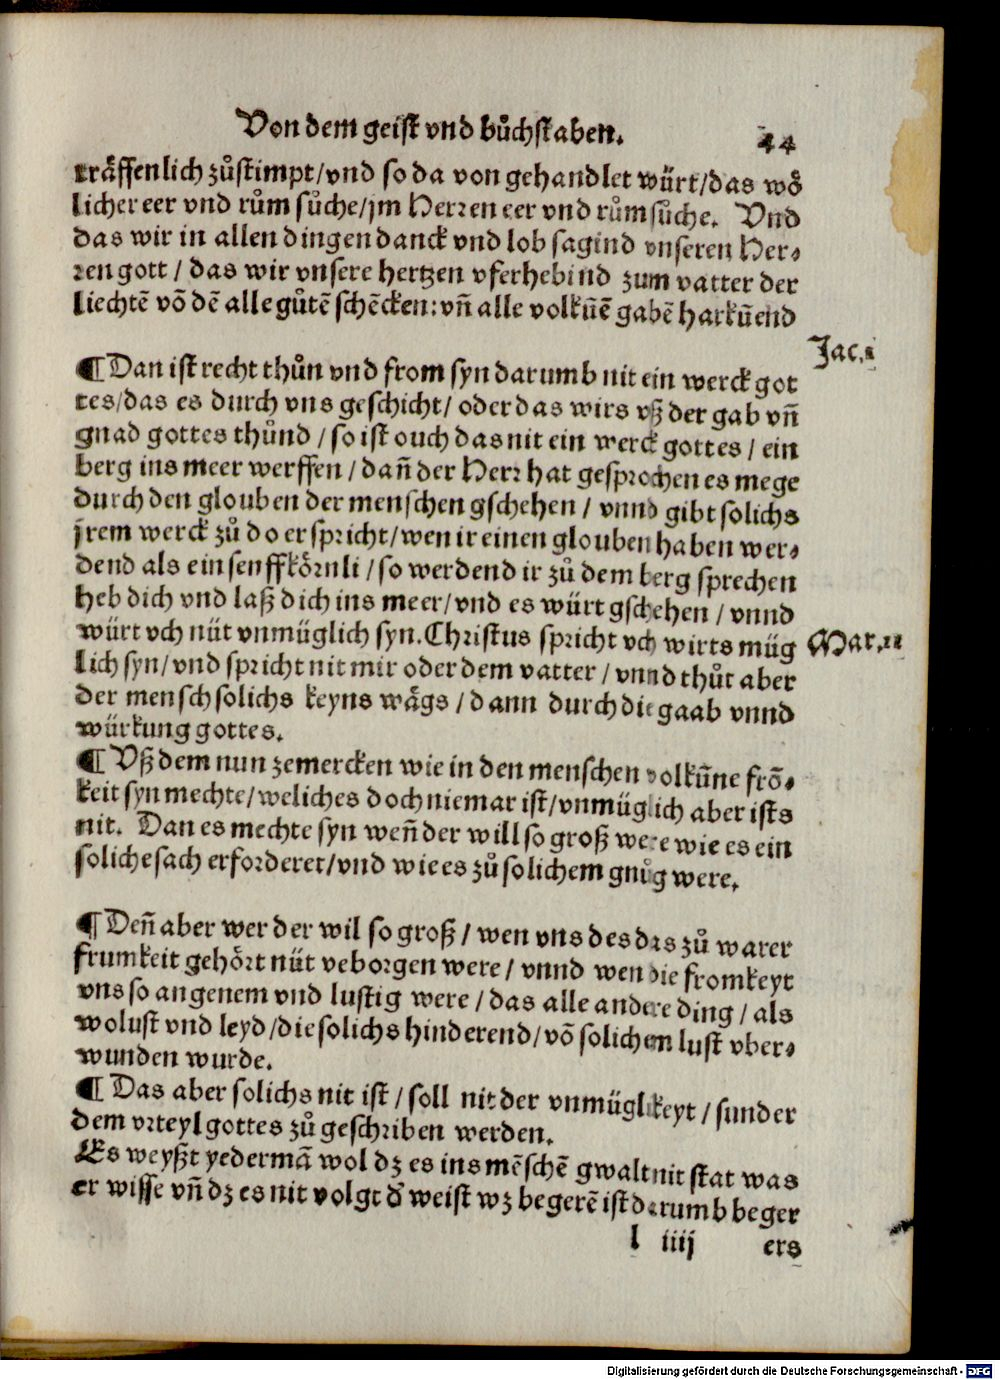 Von dem geist vnd bůchstaben. 44
träffenlich zůstimpt/vnd so da von gehandlet würt/das wö
licher eer vnd rům sůche/jm Herren eer vnd rům sůche. Vnd
das wir in allen dingen danck vnd lob sagind vnseren Her⸗
ren gott / das wir vnsere hertzen vferhebind zum vatter der
liechtē vō dē alle gůtē schēckēn: vn̄ alle volkūē gabē harkūend
Jac.1
¶ Dan ist recht thůn vnd from syn darumb nit ein werck got
tes/das es durch vns geschicht/ oder das wirs vß der gab vn̄
gnad gottes thůnd / so ist ouch das nit ein werck gottes / ein
berg ins meer werffen / dan̄ der Herr hat gesprochen es mege
durch den glouben der menschen gschehen / vnnd gibt solichs
jrem werck zů do er spricht/wen ir einen glouben haben wer⸗
dend als ein senffkörnli / so werdend ir zů dem berg sprechen
heb dich vnd laß dich ins meer/vnd es würt gschehen / vnnd
würt vch nüt vnmüglich syn. Christus spricht vch wirts müg
Mar.11
lich syn/vnd spricht nit mir oder dem vatter / vnnd thůt aber
der mensch solichs keyns wägs / dann durch die gaab vnnd
würkung gottes.
¶ Vß dem nun zemercken wie in den menschen volkūne frō⸗
keit syn mechte/weliches doch niemar ist/vnmüglich aber ists
nit. Dan es mechte syn wen̄ der will so groß were wie es ein
soliche sach erforderet/vnd wie es zů solichem gnůg were.
¶ Den̄ aber wer der wil so groß / wen vns des das zů warer
frumkeit gehört nüt veborgen were / vnnd wen die fromkeyt
vns so angenem vnd lustig were / das alle andere ding / als
wolust vnd leyd/die solichs hinderend/vō solichem lust vber⸗
wunden wurde.
¶ Das aber solichs nit ist / soll nit der vnmüglikeyt / sunder
dem vrteyl gottes zů geschriben werden.
Es weyßt yedermā wol dz es ins mēschē gwalt nit stat was
er wisse vn̄ dz es nit volgt d' weist wz begerē ist darumb beger
l iiij ers
Digitalisierung gefördert durch die Deutsche Forschungsgemeinschaft - DFG